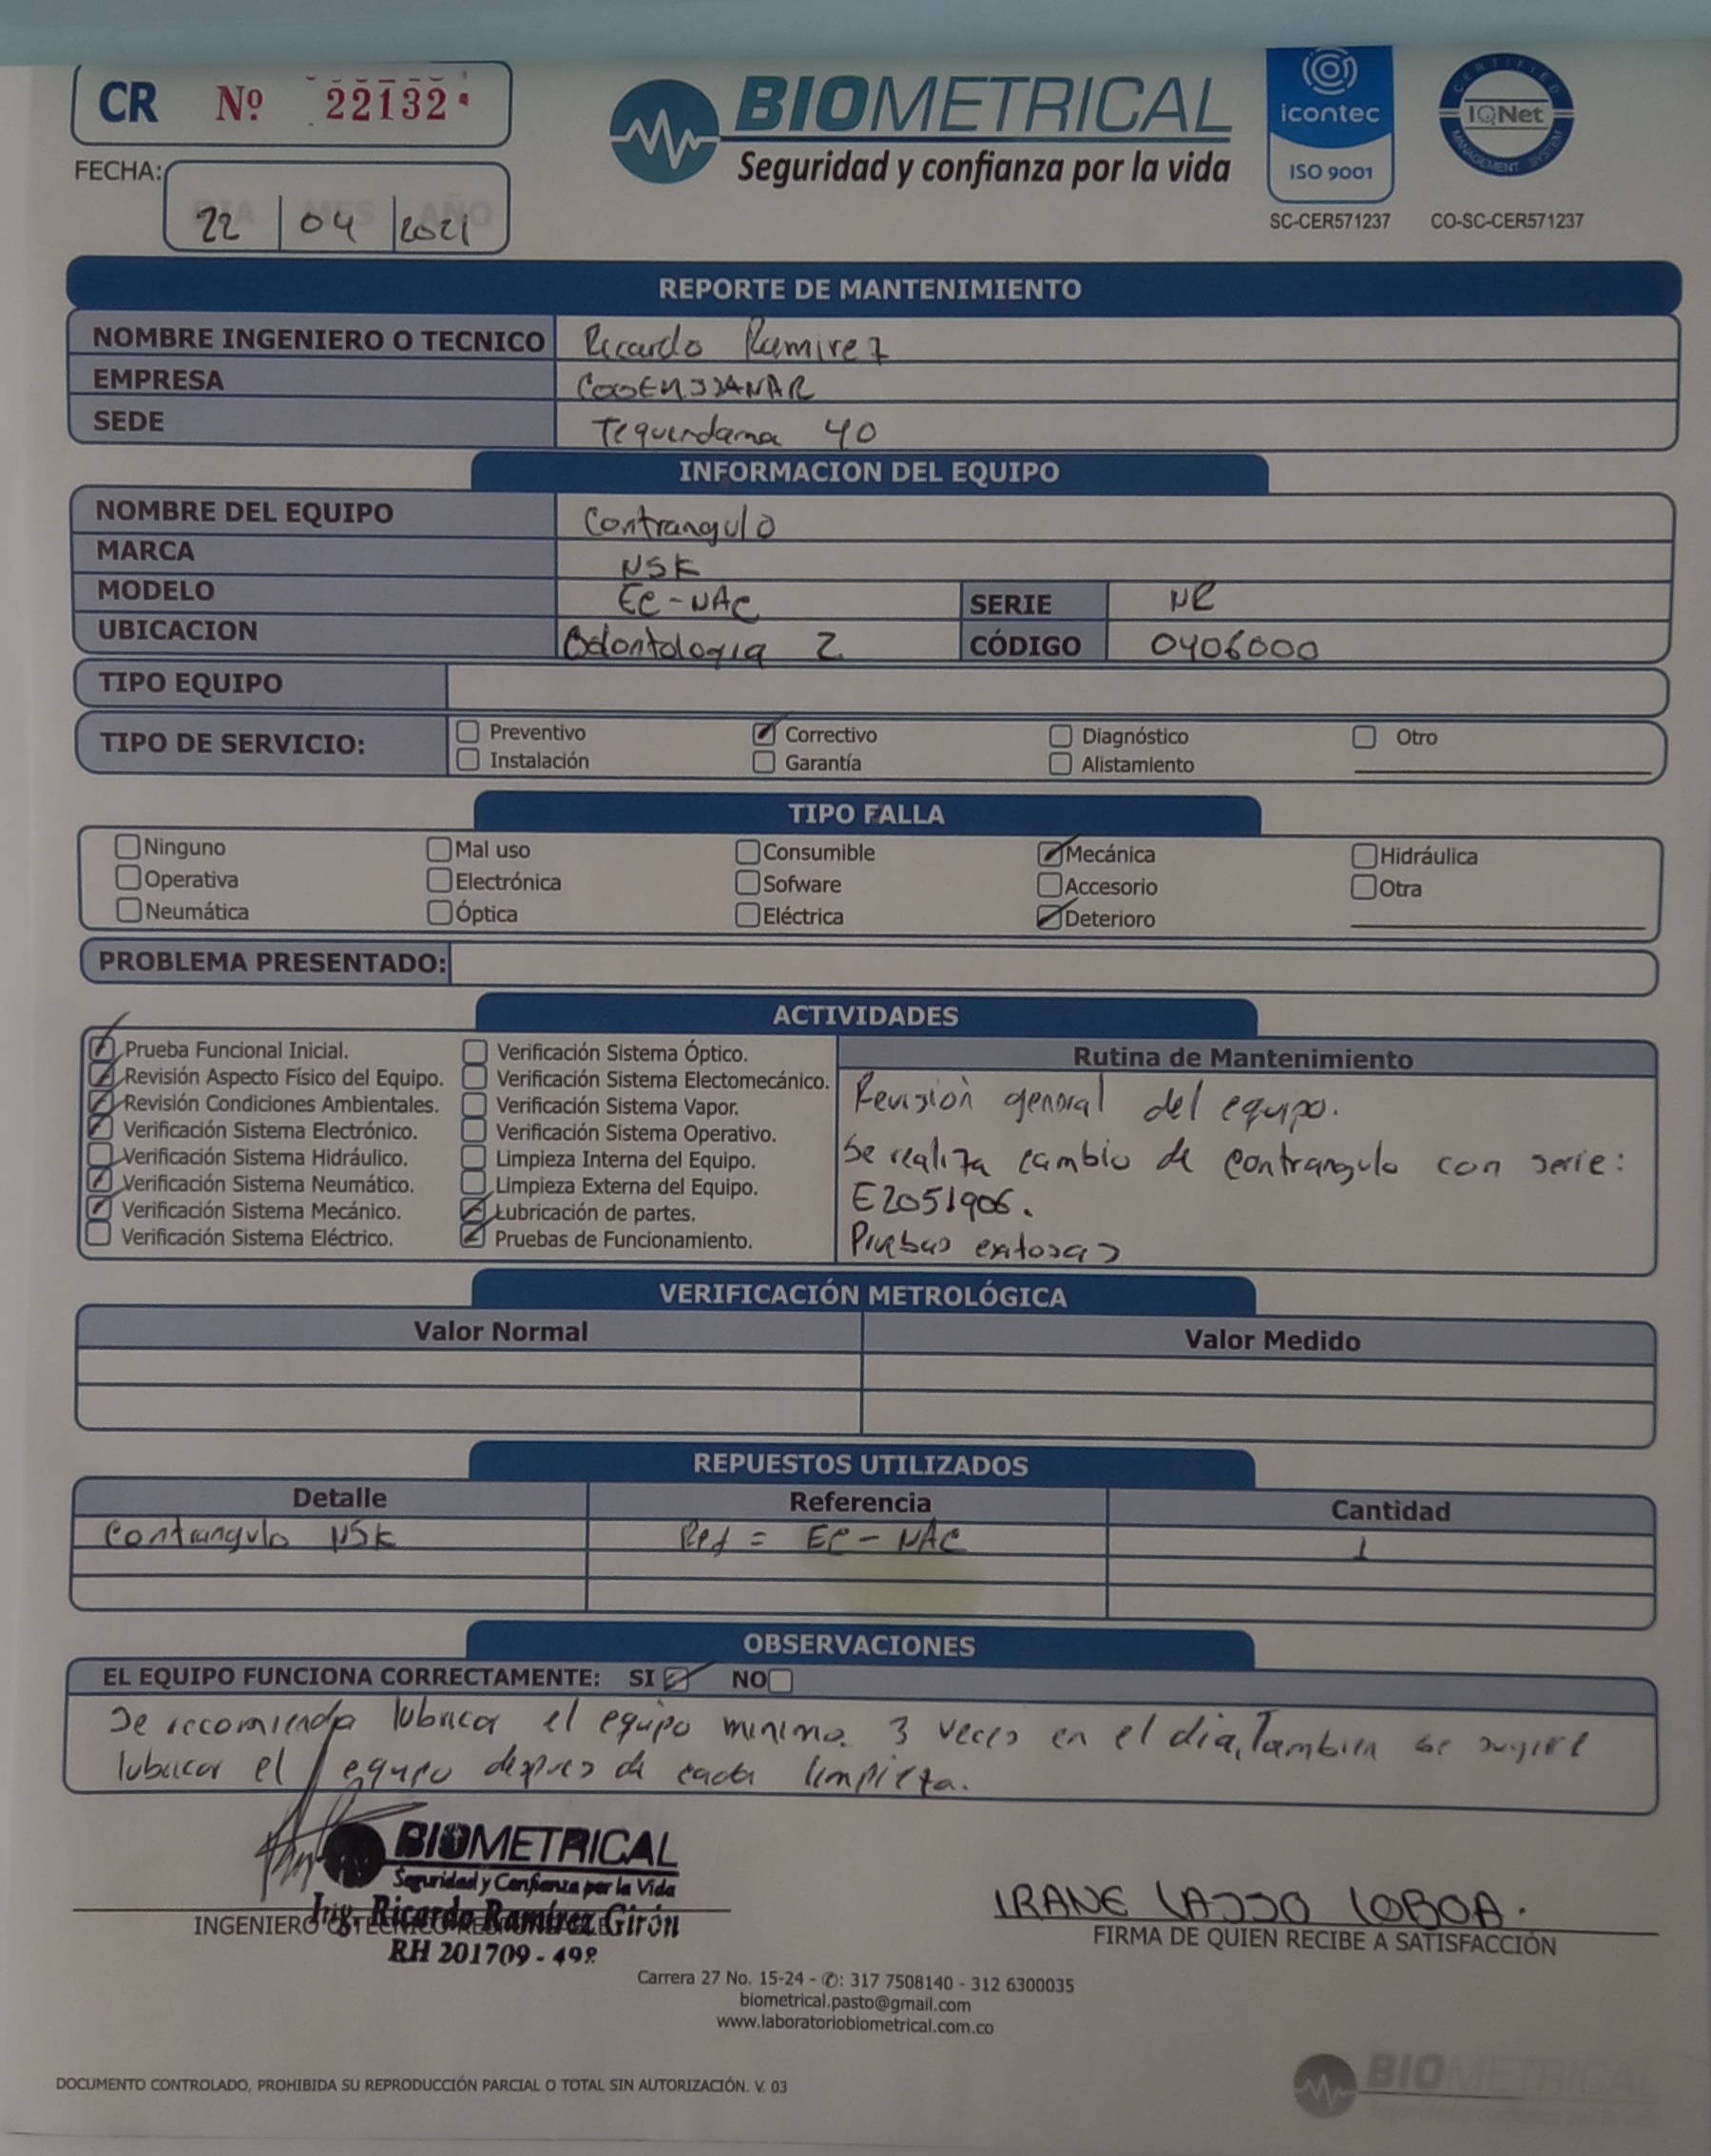 CR Nº 22132
BIOMETRICAL
Seguridad y confianza por la vida
icontec
ISO 9001
SC-CER571237
CERTIFIED
IQNet
MANAGEMENT SYSTEM
CO-SC-CER571237
FECHA:
DIA MES AÑO
22 04 2021
REPORTE DE MANTENIMIENTO
NOMBRE INGENIERO O TECNICO Ricardo Ramirez
EMPRESA
SEDE Tequendama 40
INFORMACION DEL EQUIPO
NOMBRE DEL EQUIPO Contrangulo
MARCA NSK
MODELO EC-NAC SERIE NR
UBICACION Odontologia 2 CÓDIGO 0406000
TIPO EQUIPO
TIPO DE SERVICIO:
Preventivo Correctivo Diagnóstico Otro
Instalación Garantía Alistamiento
TIPO FALLA
Ninguno Mal uso Consumible Mecánica Hidráulica
Operativa Electrónica Sofware Accesorio Otra
Neumática Óptica Eléctrica Deterioro
PROBLEMA PRESENTADO:
ACTIVIDADES
Prueba Funcional Inicial.
Revisión Aspecto Físico del Equipo.
Revisión Condiciones Ambientales.
Verificación Sistema Electrónico.
Verificación Sistema Hidráulico.
Verificación Sistema Neumático.
Verificación Sistema Mecánico.
Verificación Sistema Eléctrico.
Verificación Sistema Óptico.
Verificación Sistema Electomecánico.
Verificación Sistema Vapor.
Verificación Sistema Operativo.
Limpieza Interna del Equipo.
Limpieza Externa del Equipo.
Lubricación de partes.
Pruebas de Funcionamiento.
Rutina de Mantenimiento
Revisión general del equipo.
Se realiza cambio de contrangulo con serie:
E2051906.
Pruebas exitosas
VERIFICACIÓN METROLÓGICA
Valor Normal Valor Medido
REPUESTOS UTILIZADOS
Detalle Referencia Cantidad
Contrangulo NSK Ref = EC-NAC 1
OBSERVACIONES
EL EQUIPO FUNCIONA CORRECTAMENTE: SI NO
Se recomienda lubricar el equipo minimo. 3 veces en el dia, Tambien se sugiere
lubricar el equipo despues de cada limpieza.
BIOMETRICAL
Seguridad y Confianza por la Vida
Ing. Ricardo Ramírez Girón
INGENIERO O TECNICO
RH 201709 - 498
IRANE LASSO LOBOA.
FIRMA DE QUIEN RECIBE A SATISFACCIÓN
Carrera 27 No. 15-24 - ✆: 317 7508140 - 312 6300035
biometrical.pasto@gmail.com
www.laboratoriobiometrical.com.co
DOCUMENTO CONTROLADO, PROHIBIDA SU REPRODUCCIÓN PARCIAL O TOTAL SIN AUTORIZACIÓN. V. 03
BIOMETRICAL
Seguridad y confianza por la vida